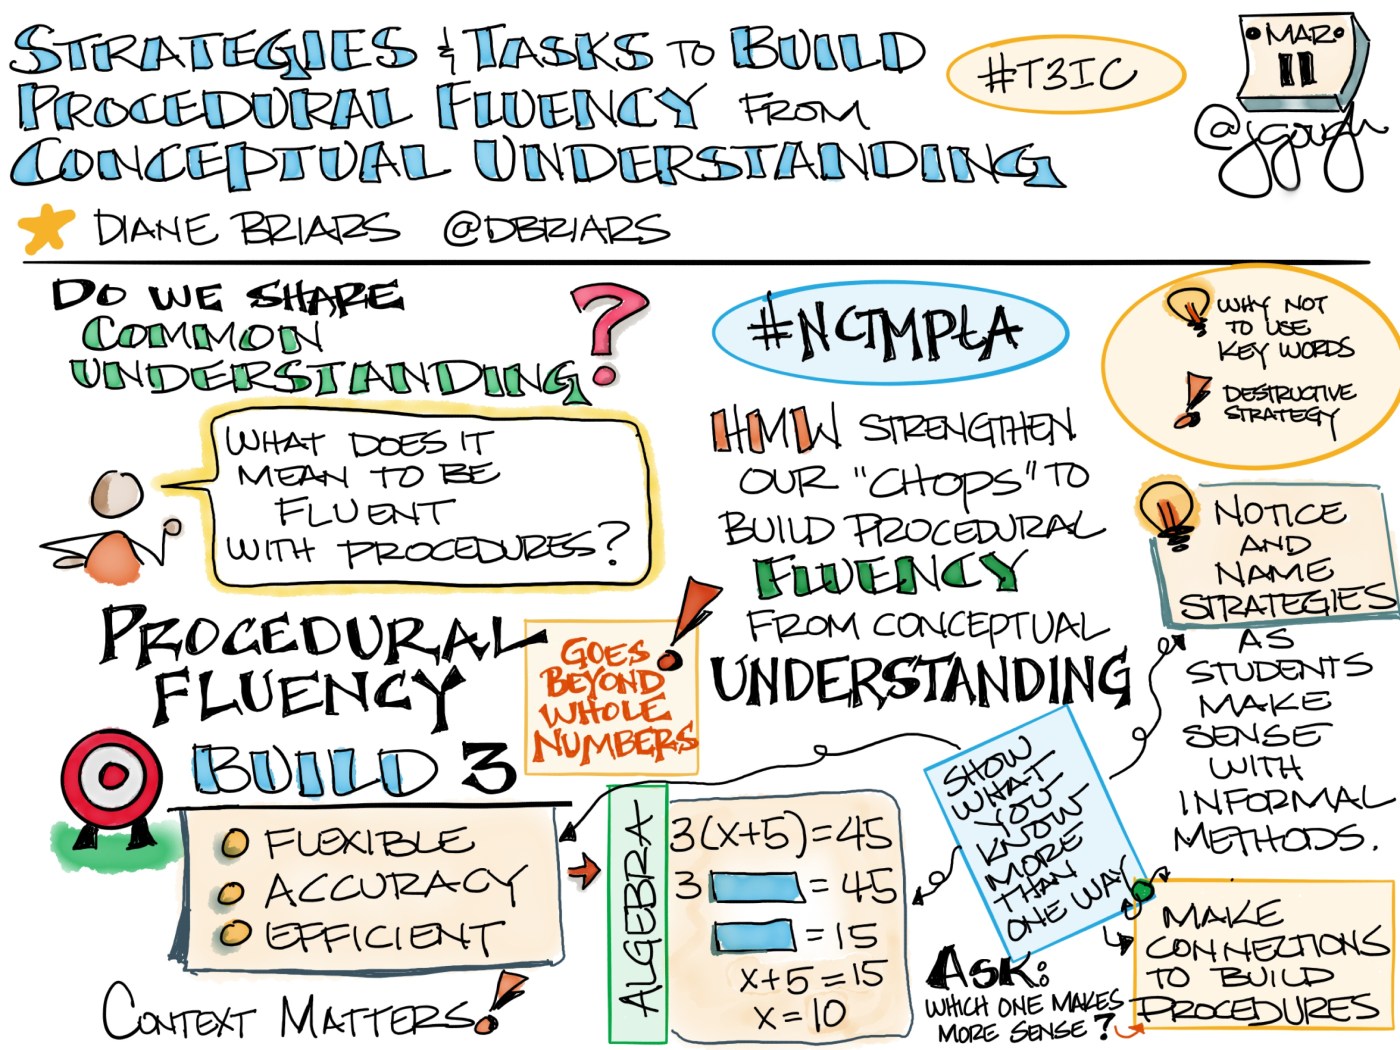 STRATEGIES & TASKS TO BUILD
PROCEDURAL FLUENCY FROM
CONCEPTUAL UNDERSTANDING
#T3IC
MAR
11
@jgough
DIANE BRIARS @DBRIARS
DO WE SHARE
COMMON
UNDERSTANDING?
WHAT DOES IT
MEAN TO BE
FLUENT
WITH PROCEDURES?
PROCEDURAL
FLUENCY
BUILD 3
GOES
BEYOND
WHOLE
NUMBERS
!
FLEXIBLE
ACCURACY
EFFICIENT
CONTEXT MATTERS!
ALGEBRA
3(x+5)=45
3 = 45
= 15
x+5=15
x=10
#NCTMP&A
HMW STRENGTHEN
OUR "CHOPS" TO
BUILD PROCEDURAL
FLUENCY
FROM CONCEPTUAL
UNDERSTANDING
SHOW
WHAT
YOU
KNOW
MORE
THAN
ONE WAY
ASK:
WHICH ONE MAKES
MORE SENSE?
WHY NOT
TO USE
KEY WORDS
! DESTRUCTIVE
STRATEGY
NOTICE
AND
NAME
STRATEGIES
AS
STUDENTS
MAKE
SENSE
WITH
INFORMAL
METHODS.
MAKE
CONNECTIONS
TO BUILD
PROCEDURES